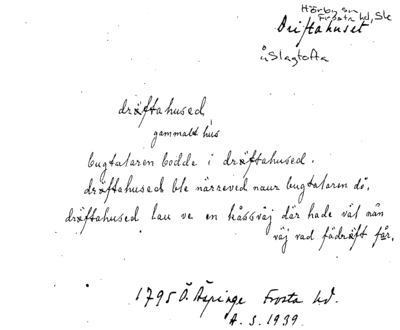 Hörby sn
Frosta hd, Sk
Driftahuset
å Slagtofta
dräftahused,
gammalt hus
bugtalaren bodde i dräftahused.
dräftahused ble närreved naur bugtalaren dö.
dräftahused lau ve en kåssväj där hade vat nån
väj vad fädräft får.
1795 Ö. Äspinge Frosta hd.
A. S. 1939.